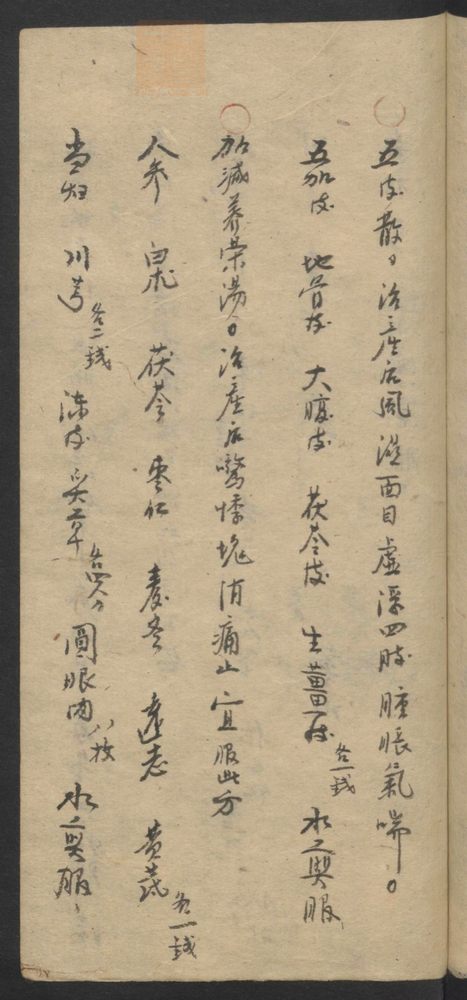 ○五皮散。治產后風濕面目虛浮四肢腫脹氣喘。
五加皮 地骨皮 大腹皮 茯苓皮 生薑皮各一錢 水煎服
○加減養榮湯。治產后驚悸塊消痛止宜服此方
人參 白朮 茯苓 棗仁 麦冬 遠志 黄芪各一錢
当归 川芎各二錢 陈皮 炙草各四分 圓眼肉八枚 水煎服